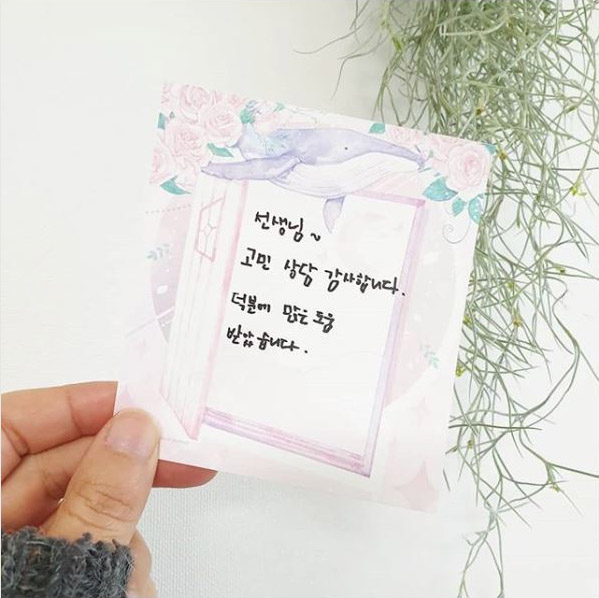 선생님~
고민 상담 감사합니다.
덕분에 많은 도움
받았습니다.